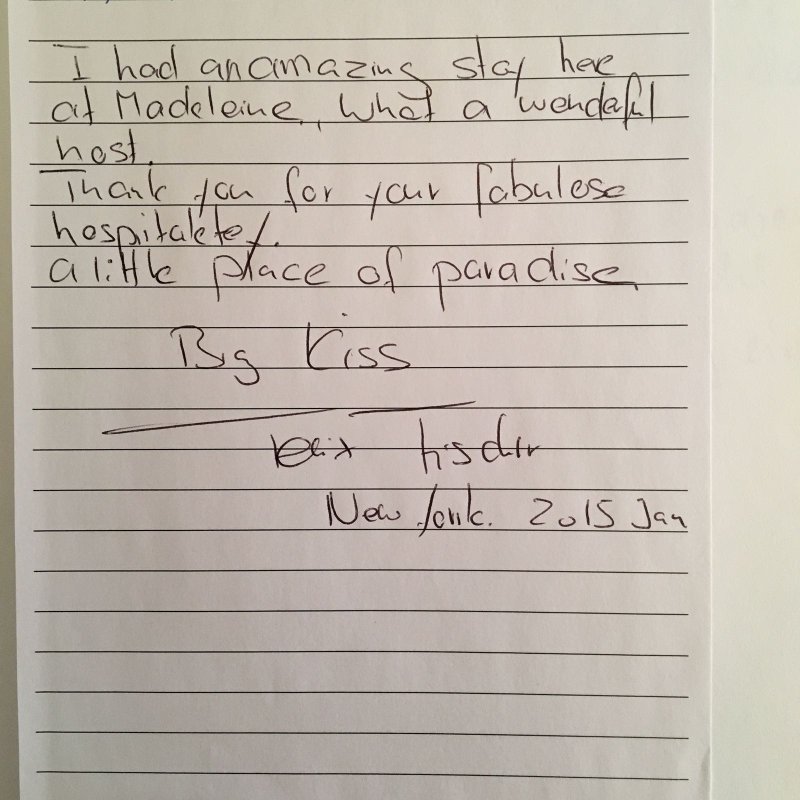 I had an amazing stay here
at Madeleine, What a wonderful
host.
Thank you for your fabulose
hospitalety.
a little place of paradise
Big Kiss
New York. 2015 Jan